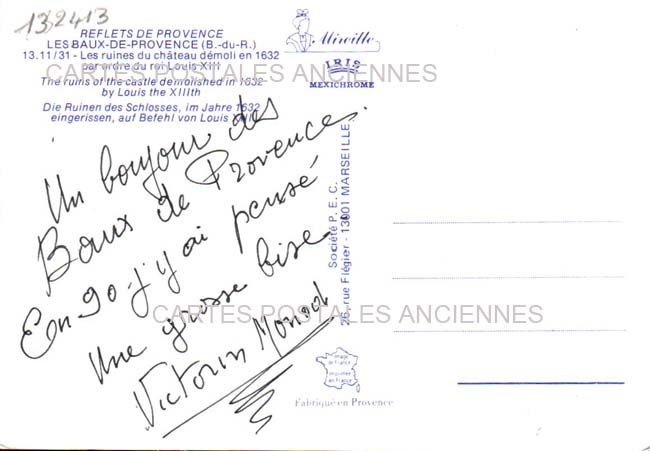 132413
REFLETS DE PROVENCE
LES BAUX-DE-PROVENCE (B.-du-R.)
13.11/31 - Les ruines du château démoli en 1632
par ordre du roi Louis XIII
The ruins of the castle demolished in 1632
by Louis the XIIIth
Die Ruinen des Schlosses, im Jahre 1632
eingerissen, auf Befehl von Louis XIII
Mireille
IRIS
MEXICHROME
CARTES POSTALES ANCIENNES
Un bonjour des
Baux de Provence.
En 90 - j'y ai pensé
Une grosse bise
Victorin
Société P.E.C.
26, rue Flégier - 13001 MARSEILLE
CARTES POSTALES ANCIENNES
Image de France
Imprimée en France
Fabriqué en Provence